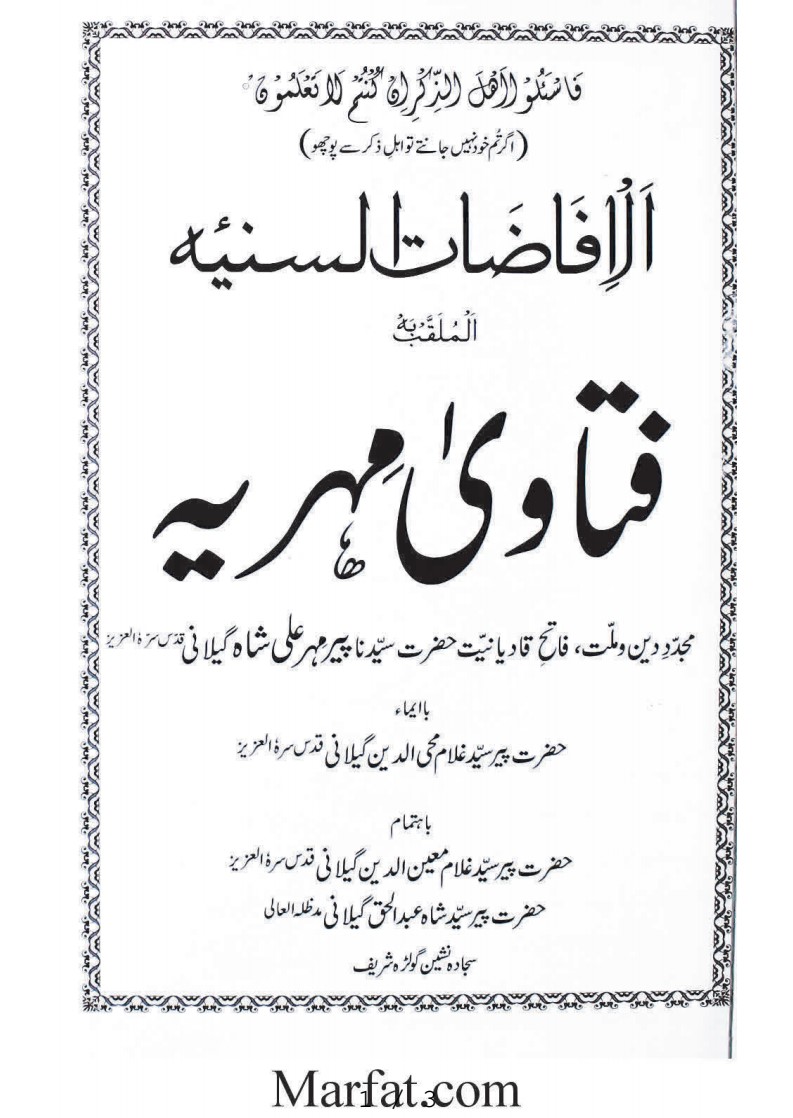 فَاسْئَلُوْا اَهْلَ الذِّكْرِ اِنْ كُنْتُمْ لَا تَعْلَمُوْنَ
(اگر تُم خود نہیں جانتے تو اہلِ ذکر سے پوچھو)
اَلْاِفَاضَات السنیّه
اَلْمُلَقَّبْ بَهْ
فتاویٰ مِہریہ
مجدّدِ دین و ملّت، فاتحِ قادیانیّت حضرت سیّدنا پیر مہر علی شاہ گیلانی قدّس سرّہٗ العزیز
با ایماء
حضرت پیر سیّد غلام محی الدین گیلانی قدس سرہٗ العزیز
باہتمام
حضرت پیر سیّد غلام معین الدین گیلانی قدس سرہٗ العزیز
حضرت پیر سیّد شاہ عبدالحق گیلانی مدظلہ العالی
سجادہ نشین گولڑہ شریف
Marfat.com
1 / 3